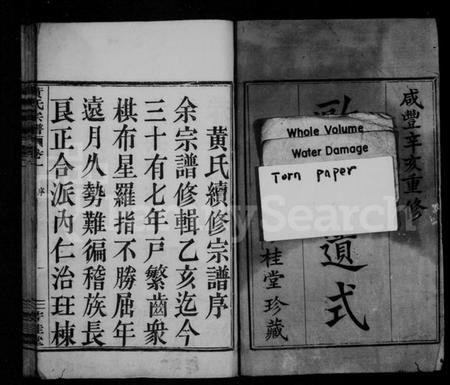 咸豐辛亥重修
遺式
桂堂珍藏
Whole Volume
Water Damage
Torn paper
黃氏續修宗譜序
余宗譜修輯乙亥迄今
三十有七年戶繁齒衆
棋布星羅指不勝屈年
遠月久勢難徧稽族長
良正合派內仁治班棟